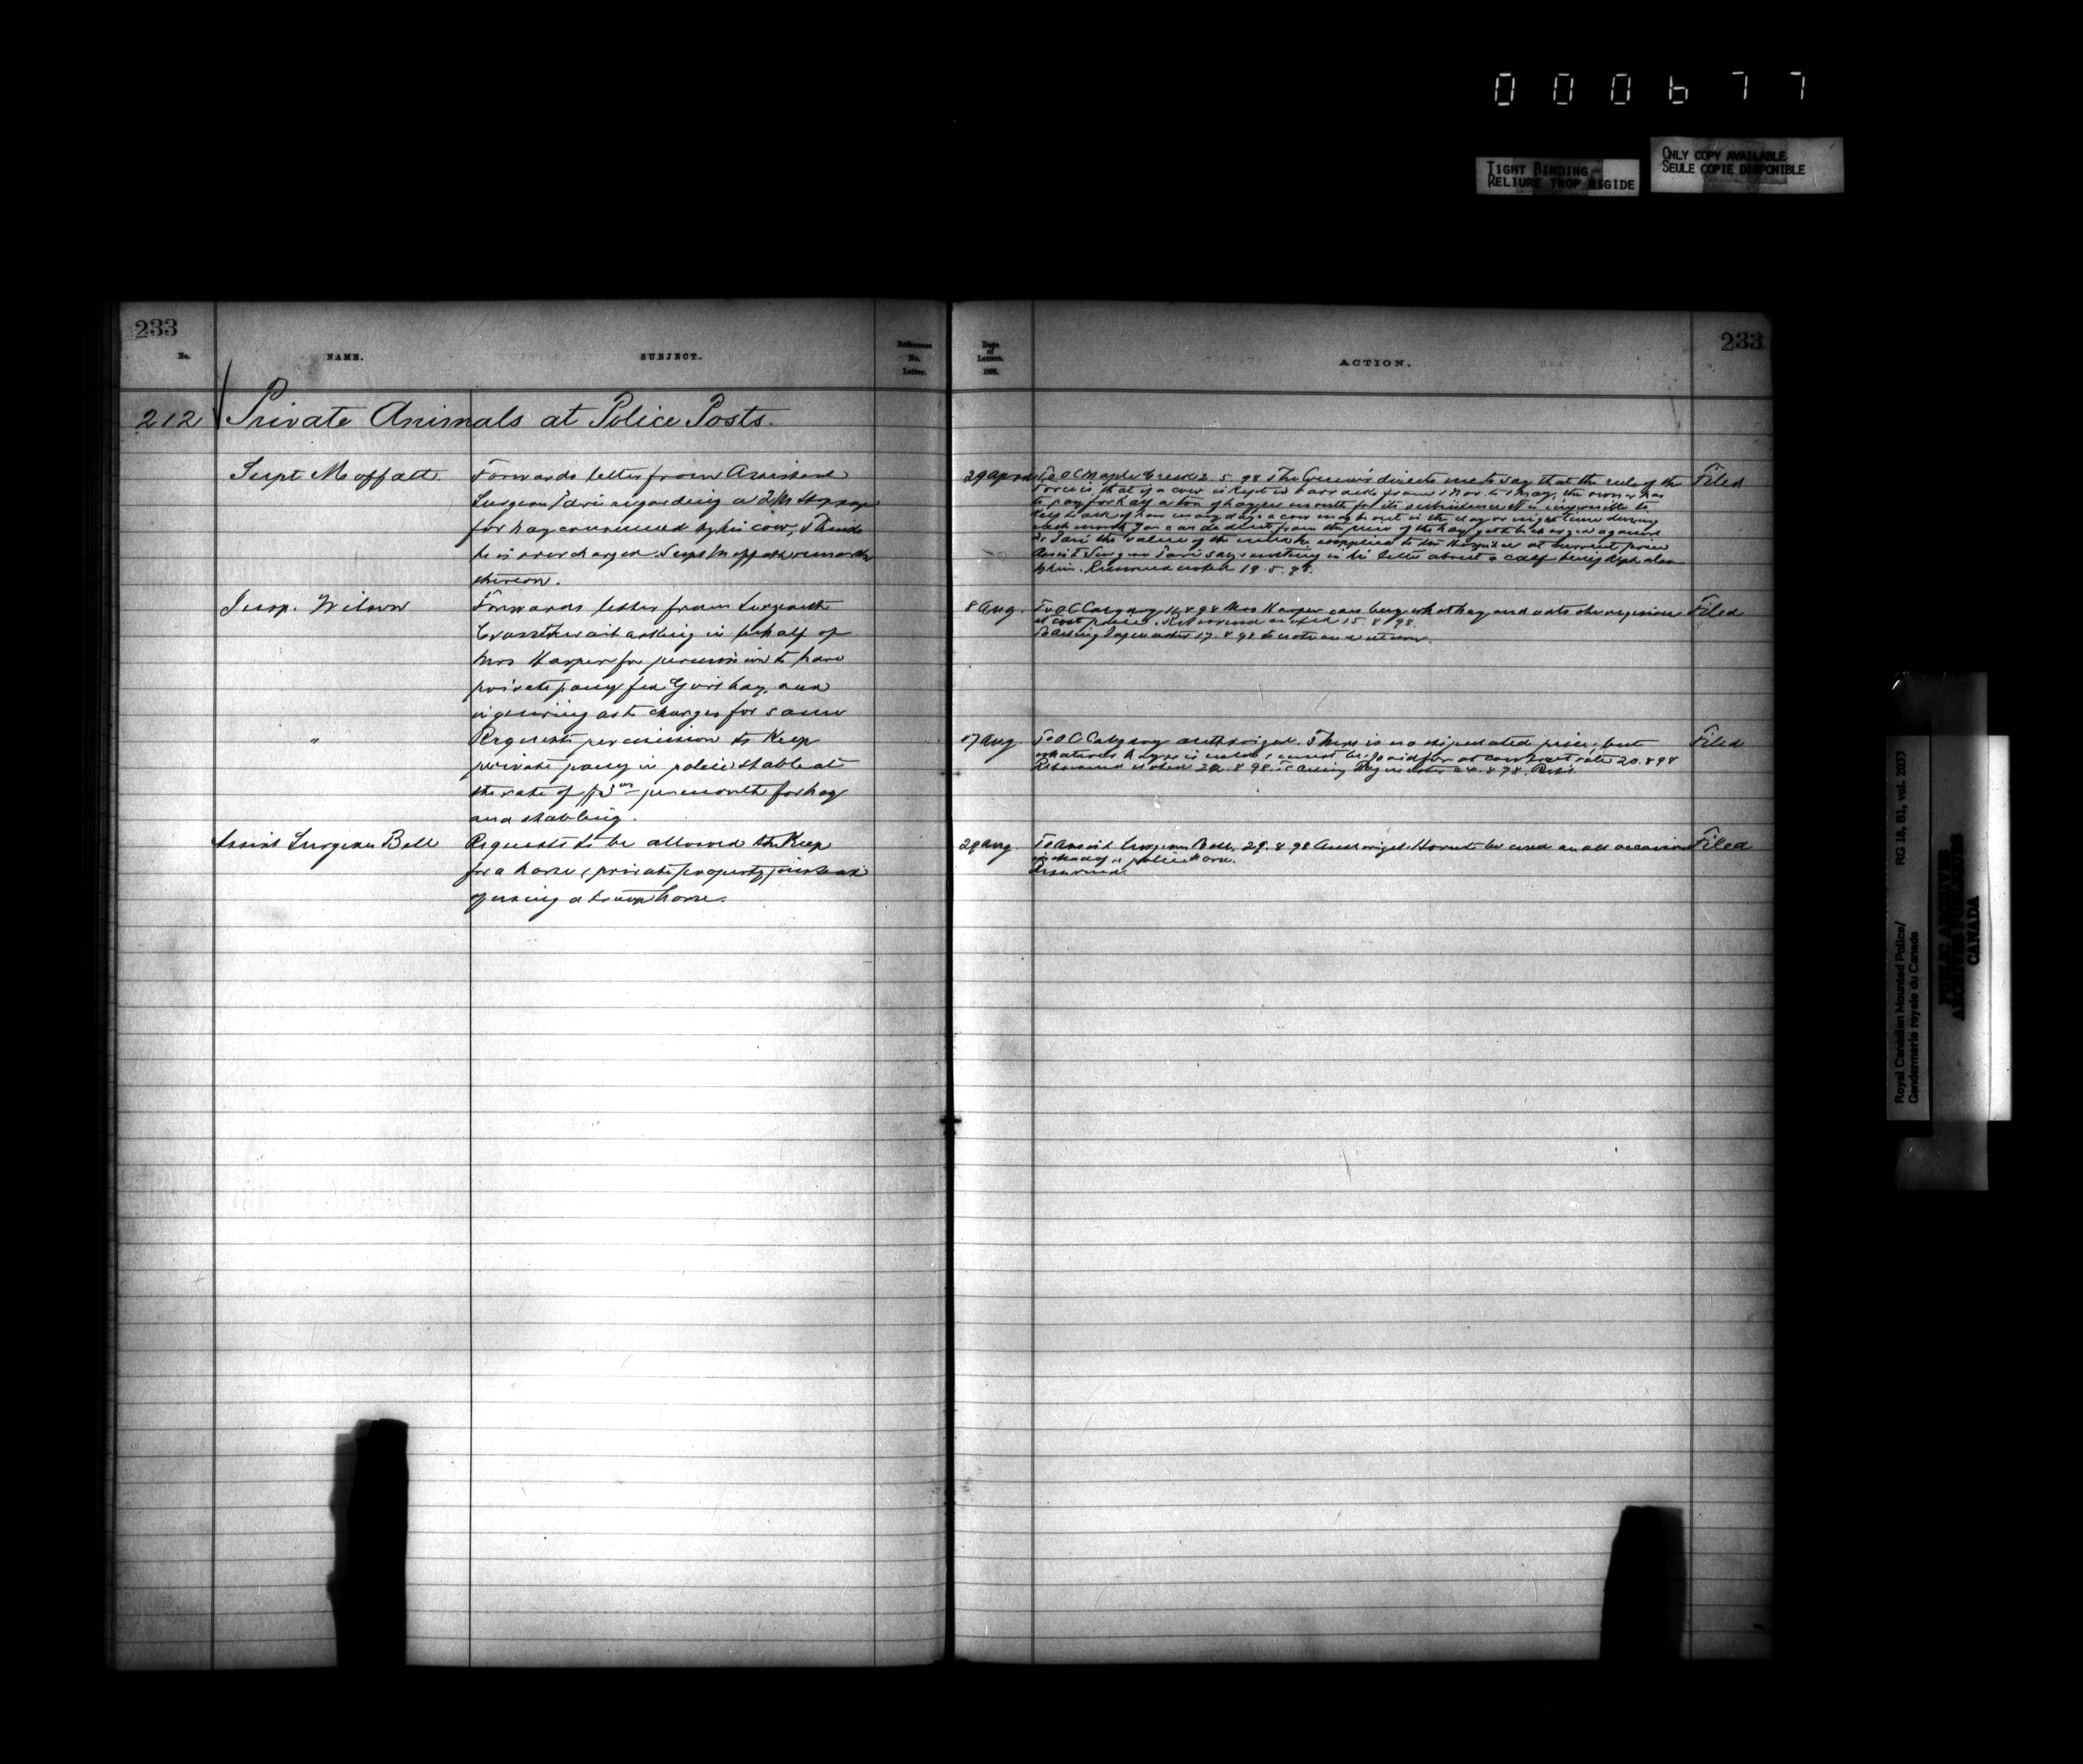 000677
TIGHT BINDING
RELIURE TROP RIGIDE
ONLY COPY AVAILABLE
SEULE COPIE DISPONIBLE
233
No.
NAME.
SUBJECT.
Reference
No.
Letter.
212 Private Animals at Police Posts.
Supt Moffatt
Forwards letter from Assistant
Surgeon regarding a stoppage
for hay consumed by his cow, thinks
he is over charged. Supt Moffatt remarks
thereon.
Insp. Wilson
Forwards letter from Sergeant
asking in behalf of
Mrs Harper for permission to have
private pony fed Govt hay, and
enquiring as to charges for same
"
Requests permission to Keep
private pony in police stable at
the rate of $3 00 per month for hay
and stabling.
Assist Surgeon Bell
Requests to be allowed the Keep
for a horse, private property, instead
of using a troop horse.
233
Date
of
Letters.
189
ACTION.
29 April
To OC Maple Creek 2.5.98 The Comm'r directs me to say that the rule of the
Force is, that if a cow is kept in barracks from 1 Nov. to 1 May, the owner has
to pay for half a ton of hay per month for its subsistence. It is impossible to
keep track of how many days a cow may be out in the day or night time during
each month. You can deduct from the price of the hay
the value of the milk he supplied to the Hospital at current price
Assist Surgeon says something in his letter about a calf being kept also
by him. Returned noted 19.5.98.
Filed
8 Aug.
To OC Calgary 8 98 Mrs Harper can buy what hay and oats she requires
at cost price. Returned noted 15.8.98.
To 17.8.98 to note and return.
Filed
17 Aug.
To OC Calgary authorized. There is no stipulated price, but
whatever hay is used must be paid for at contract rate 20.8.98
Returned noted 8 98. To 8 98.
Filed
29 Aug
To Assist Surgeon Bell, 29.8.98 Authorized. Horse to be used on all occasions
instead of a police horse.
Returned.
Filed
Royal Canadian Mounted Police/
Gendarmerie royale du Canada
RG 18, B1, vol. 2033
PUBLIC ARCHIVES
ARCHIVES PUBLIQUES
CANADA